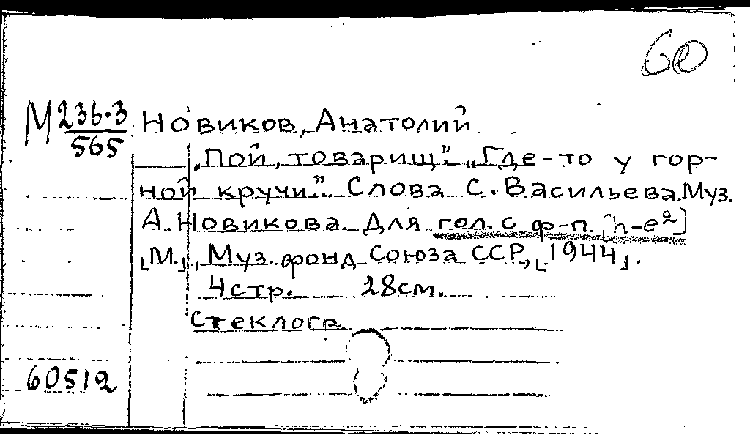 60
М 236-3 Новиков, Анатолий
565
"Пой, товарищ". "Где-то у гор-
ной кручи". Слова С. Васильева. Муз.
А. Новикова. Для гол. с ф-п. [h-e²]
[М.], Муз. фонд Союза ССР, [1944].
4 стр. 28 см.
Стеклогр.
60512